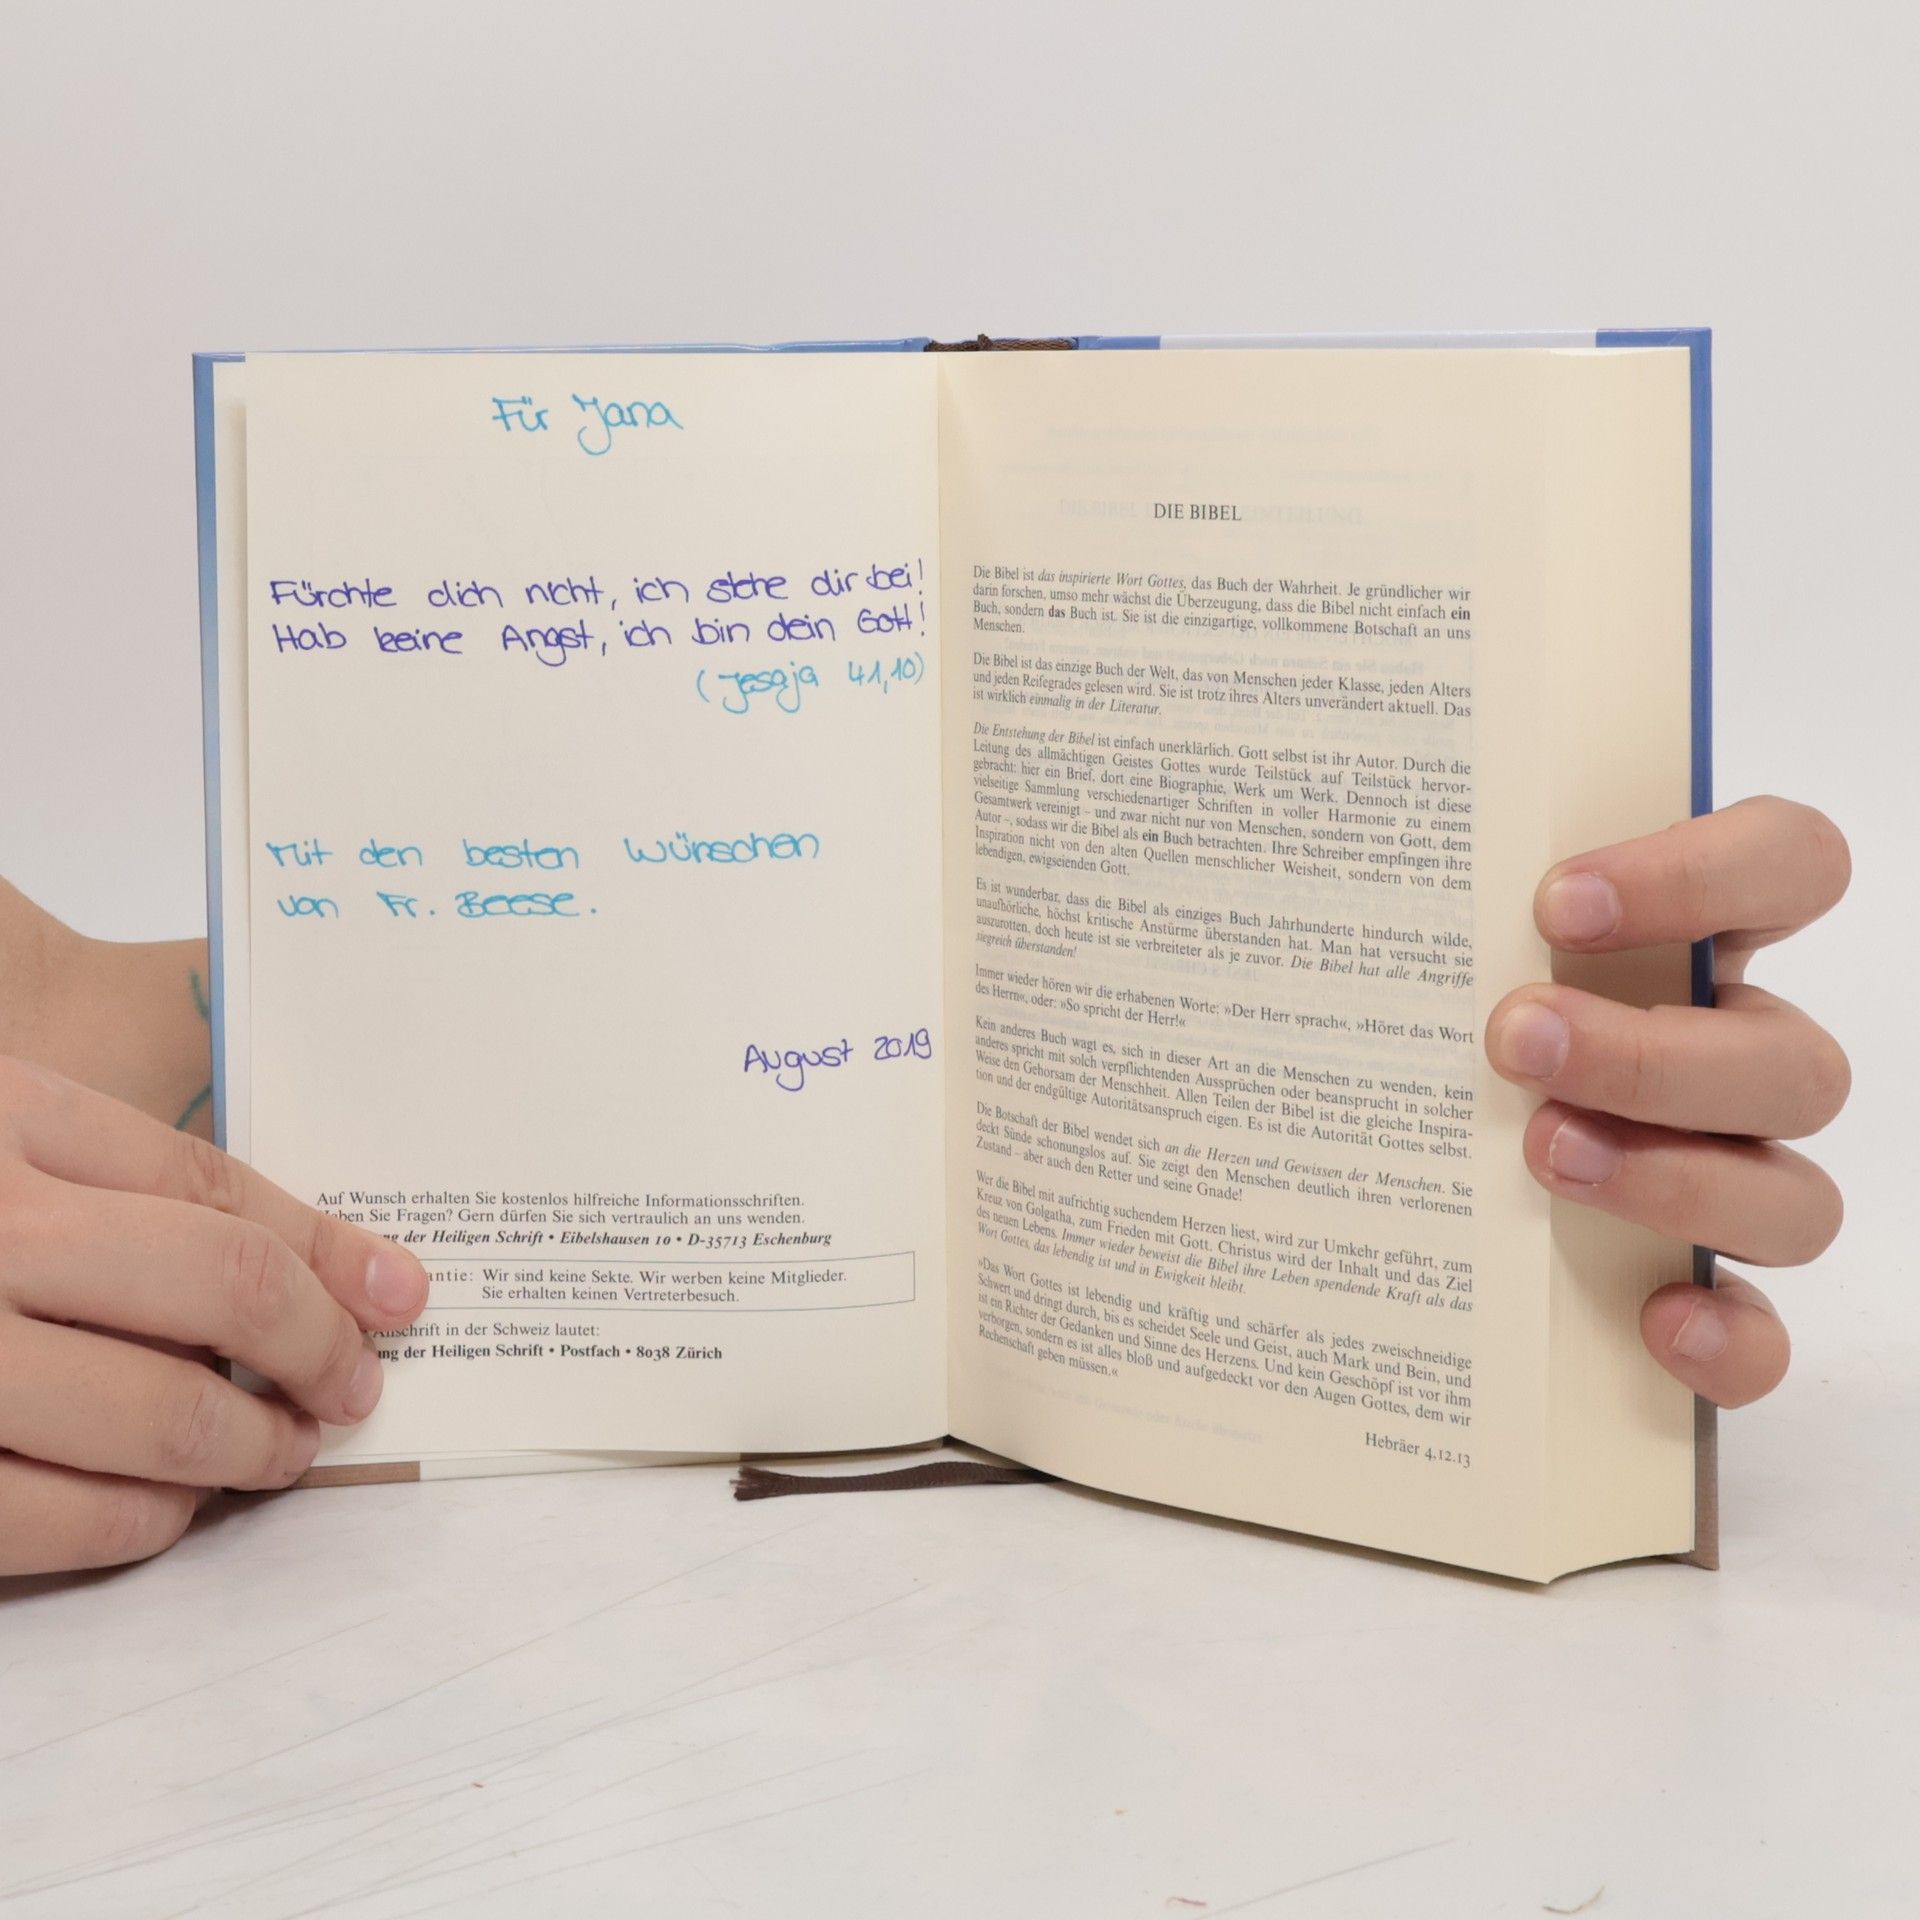 Für Jana
Fürchte dich nicht, ich stehe dir bei!
Hab keine Angst, ich bin dein Gott!
(Jesaja 41,10)
Mit den besten Wünschen
von Fr. Beese.
August 2019
Auf Wunsch erhalten Sie kostenlos hilfreiche Informationsschriften.
Haben Sie Fragen? Gern dürfen Sie sich vertraulich an uns wenden.
der Heiligen Schrift • Eibelshausen 10 • D-35713 Eschenburg
Wir sind keine Sekte. Wir werben keine Mitglieder.
Sie erhalten keinen Vertreterbesuch.
Anschrift in der Schweiz lautet:
der Heiligen Schrift • Postfach • 8038 Zürich
DIE BIBEL
Die Bibel ist das inspirierte Wort Gottes, das Buch der Wahrheit. Je gründlicher wir
darin forschen, umso mehr wächst die Überzeugung, dass die Bibel nicht einfach ein
Buch, sondern das Buch ist. Sie ist die einzigartige, vollkommene Botschaft an uns
Menschen.
Die Bibel ist das einzige Buch der Welt, das von Menschen jeder Klasse, jeden Alters
und jeden Reifegrades gelesen wird. Sie ist trotz ihres Alters unverändert aktuell. Das
ist wirklich einmalig in der Literatur.
Die Entstehung der Bibel ist einfach unerklärlich. Gott selbst ist ihr Autor. Durch die
Leitung des allmächtigen Geistes Gottes wurde Teilstück auf Teilstück hervor-
gebracht: hier ein Brief, dort eine Biographie, Werk um Werk. Dennoch ist diese
vielseitige Sammlung verschiedenartiger Schriften in voller Harmonie zu einem
Gesamtwerk vereinigt – und zwar nicht nur von Menschen, sondern von Gott, dem
Autor –, sodass wir die Bibel als ein Buch betrachten. Ihre Schreiber empfingen ihre
Inspiration nicht von den alten Quellen menschlicher Weisheit, sondern von dem
lebendigen, ewigseienden Gott.
Es ist wunderbar, dass die Bibel als einziges Buch Jahrhunderte hindurch wilde,
unaufhörliche, höchst kritische Anstürme überstanden hat. Man hat versucht sie
auszurotten, doch heute ist sie verbreiteter als je zuvor. Die Bibel hat alle Angriffe
siegreich überstanden!
Immer wieder hören wir die erhabenen Worte: »Der Herr sprach«, »Höret das Wort
des Herrn«, oder: »So spricht der Herr!«
Kein anderes Buch wagt es, sich in dieser Art an die Menschen zu wenden, kein
anderes spricht mit solch verpflichtenden Aussprüchen oder beansprucht in solcher
Weise den Gehorsam der Menschheit. Allen Teilen der Bibel ist die gleiche Inspira-
tion und der endgültige Autoritätsanspruch eigen. Es ist die Autorität Gottes selbst.
Die Botschaft der Bibel wendet sich an die Herzen und Gewissen der Menschen. Sie
deckt Sünde schonungslos auf. Sie zeigt den Menschen deutlich ihren verlorenen
Zustand – aber auch den Retter und seine Gnade!
Wer die Bibel mit aufrichtig suchendem Herzen liest, wird zur Umkehr geführt, zum
Kreuz von Golgatha, zum Frieden mit Gott. Christus wird der Inhalt und das Ziel
des neuen Lebens. Immer wieder beweist die Bibel ihre Leben spendende Kraft als das
Wort Gottes, das lebendig ist und in Ewigkeit bleibt.
»Das Wort Gottes ist lebendig und kräftig und schärfer als jedes zweischneidige
Schwert und dringt durch, bis es scheidet Seele und Geist, auch Mark und Bein, und
ist ein Richter der Gedanken und Sinne des Herzens. Und kein Geschöpf ist vor ihm
verborgen, sondern es ist alles bloß und aufgedeckt vor den Augen Gottes, dem wir
Rechenschaft geben müssen.«
Hebräer 4,12.13